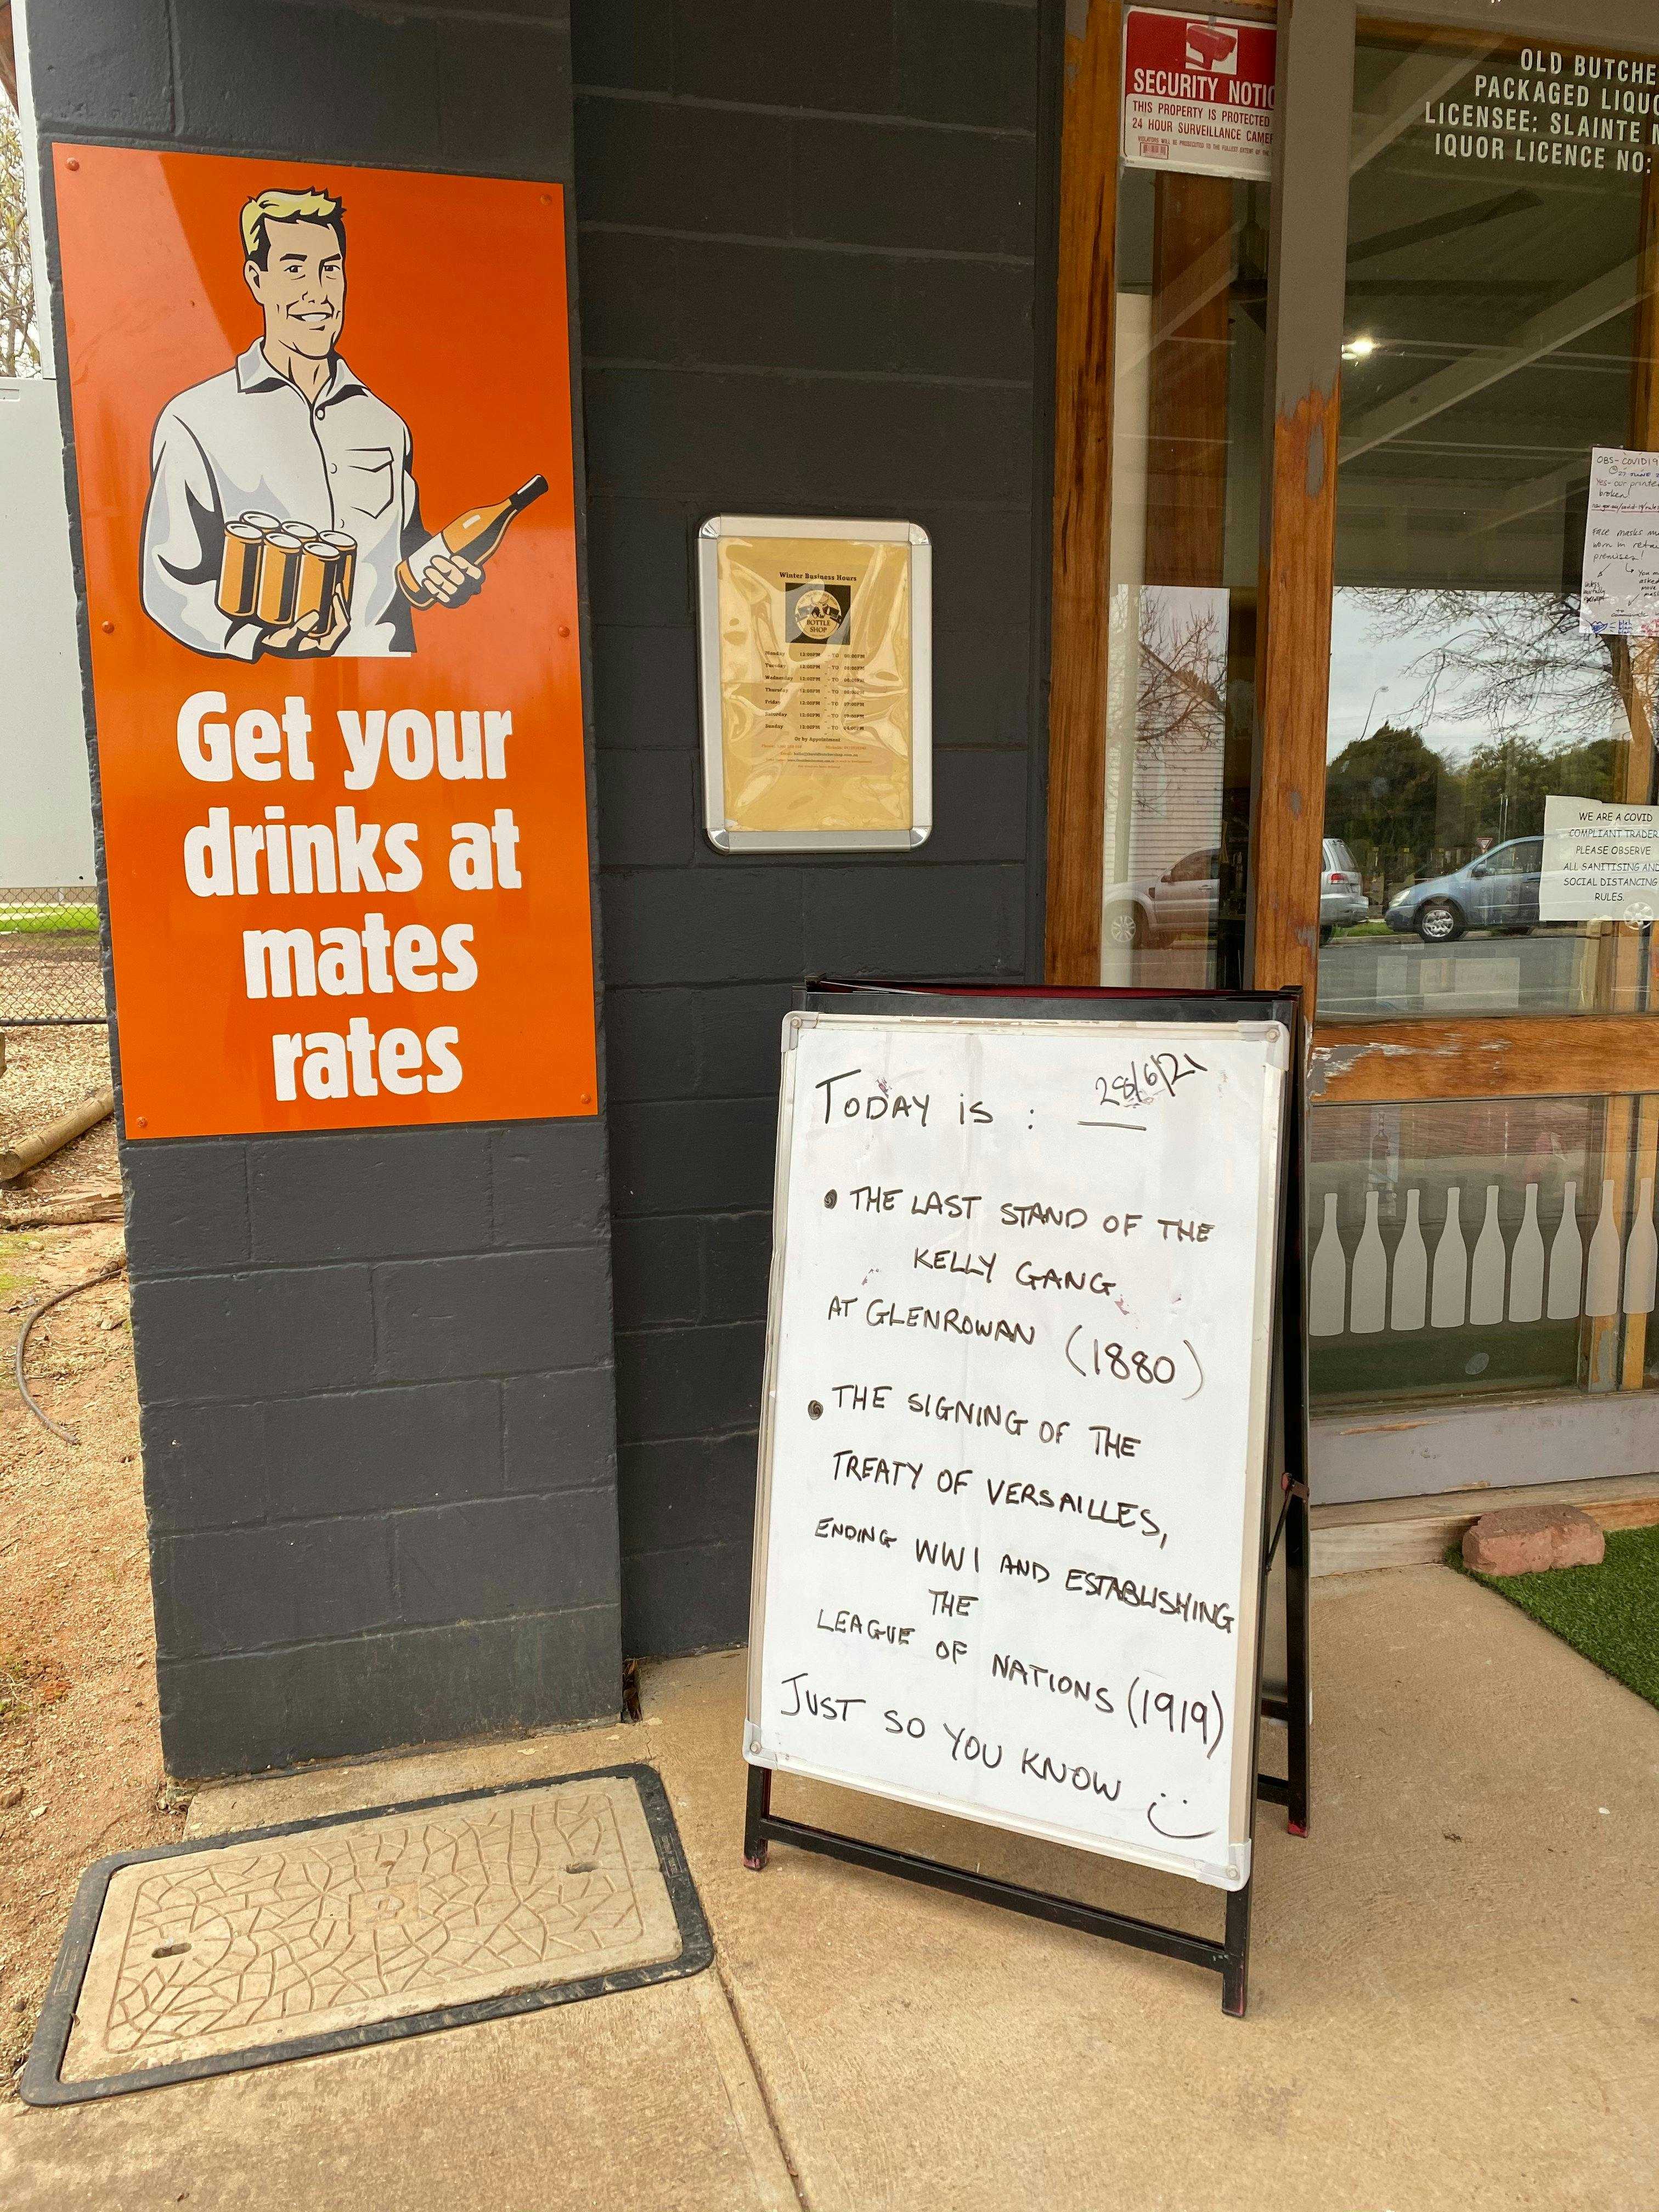 Get your
drinks at
mates
rates
Winter Business Hours
BOTTLE
SHOP
Monday
Tuesday
Wednesday
Thursday
Friday
Saturday
Sunday
Or by Appointment
SECURITY NOTIC
THIS PROPERTY IS PROTECTED
24 HOUR SURVEILLANCE CAMER
OLD BUTCHE
PACKAGED LIQUO
LICENSEE: SLAINTE M
IQUOR LICENCE NO:
OBS-COVID19
Yes- our printe
broken
FACE masks mu
worn in reta
premises!
WE ARE A COVID
COMPLIANT TRADER
PLEASE OBSERVE
ALL SANITISING AND
SOCIAL DISTANCING
RULES.
TODAY IS : 28/6/21
• THE LAST STAND OF THE
KELLY GANG
AT GLENROWAN (1880)
• THE SIGNING OF THE
TREATY OF VERSAILLES,
ENDING WW1 AND ESTABLISHING
THE
LEAGUE OF NATIONS (1919)
JUST SO YOU KNOW